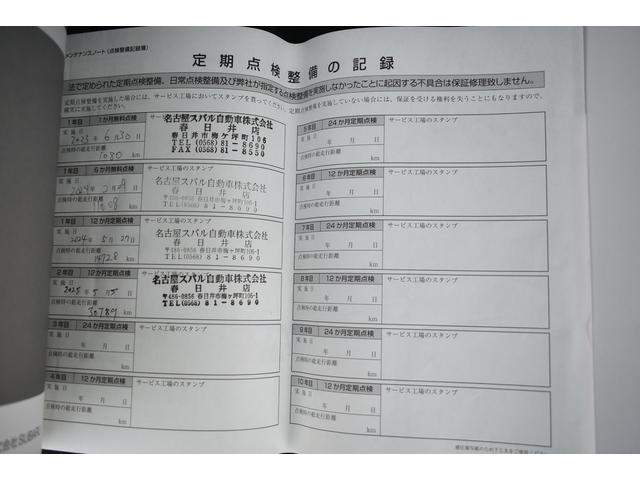 メンテナンスノート（点検整備記録簿）
定期点検整備の記録
法で定められた定期点検整備、日常点検整備及び弊社が指定する点検整備を実施しなかったことに起因する不具合は保証修理致しません。
定期点検整備を実施した場合には、サービス工場においてスタンプを貰ってください。定期点検整備を実施していない場合には、保証を受ける権利を失うことにもなりますので、
確実に実施してください。
1年目 1か月無料点検
実施日
2023年6月30日
点検時の総走行距離
1080 km
名古屋スバル自動車株式会社
春日井店
春日井市梅ケ坪町106
TEL(0568)81-8690
FAX(0568)81-8550
1年目 6か月無料点検
サービス工場のスタンプ
実施日
点検時の総走行距離
km
名古屋スバル自動車株式会社
春日井店
〒486-0856 春日井市梅ヶ坪町106-1
TEL(0568)81-8690
1年目 12か月定期点検
サービス工場のスタンプ
実施日
2024年5月27日
点検時の総走行距離
14728 km
名古屋スバル自動車株式会社
春日井店
〒486-0856 春日井市梅ヶ坪町106-1
TEL(0568)81-8690
2年目 12か月定期点検
サービス工場のスタンプ
実施日
2025年5月5日
点検時の総走行距離
30789 km
名古屋スバル自動車株式会社
春日井店
〒486-0856 春日井市梅ヶ坪町106-1
TEL(0568)81-8690
3年目 24か月定期点検
サービス工場のスタンプ
実施日
年 月 日
点検時の総走行距離
km
4年目 12か月定期点検
サービス工場のスタンプ
実施日
年 月 日
点検時の総走行距離
km
5年目 24か月定期点検
サービス工場のスタンプ
実施日
年 月 日
点検時の総走行距離
km
6年目 12か月定期点検
サービス工場のスタンプ
実施日
年 月 日
点検時の総走行距離
km
7年目 24か月定期点検
サービス工場のスタンプ
実施日
年 月 日
点検時の総走行距離
km
8年目 12か月定期点検
サービス工場のスタンプ
実施日
年 月 日
点検時の総走行距離
km
9年目 24か月定期点検
サービス工場のスタンプ
実施日
年 月 日
点検時の総走行距離
km
10年目 12か月定期点検
サービス工場のスタンプ
実施日
年 月 日
点検時の総走行距離
km
式会社SUBARU